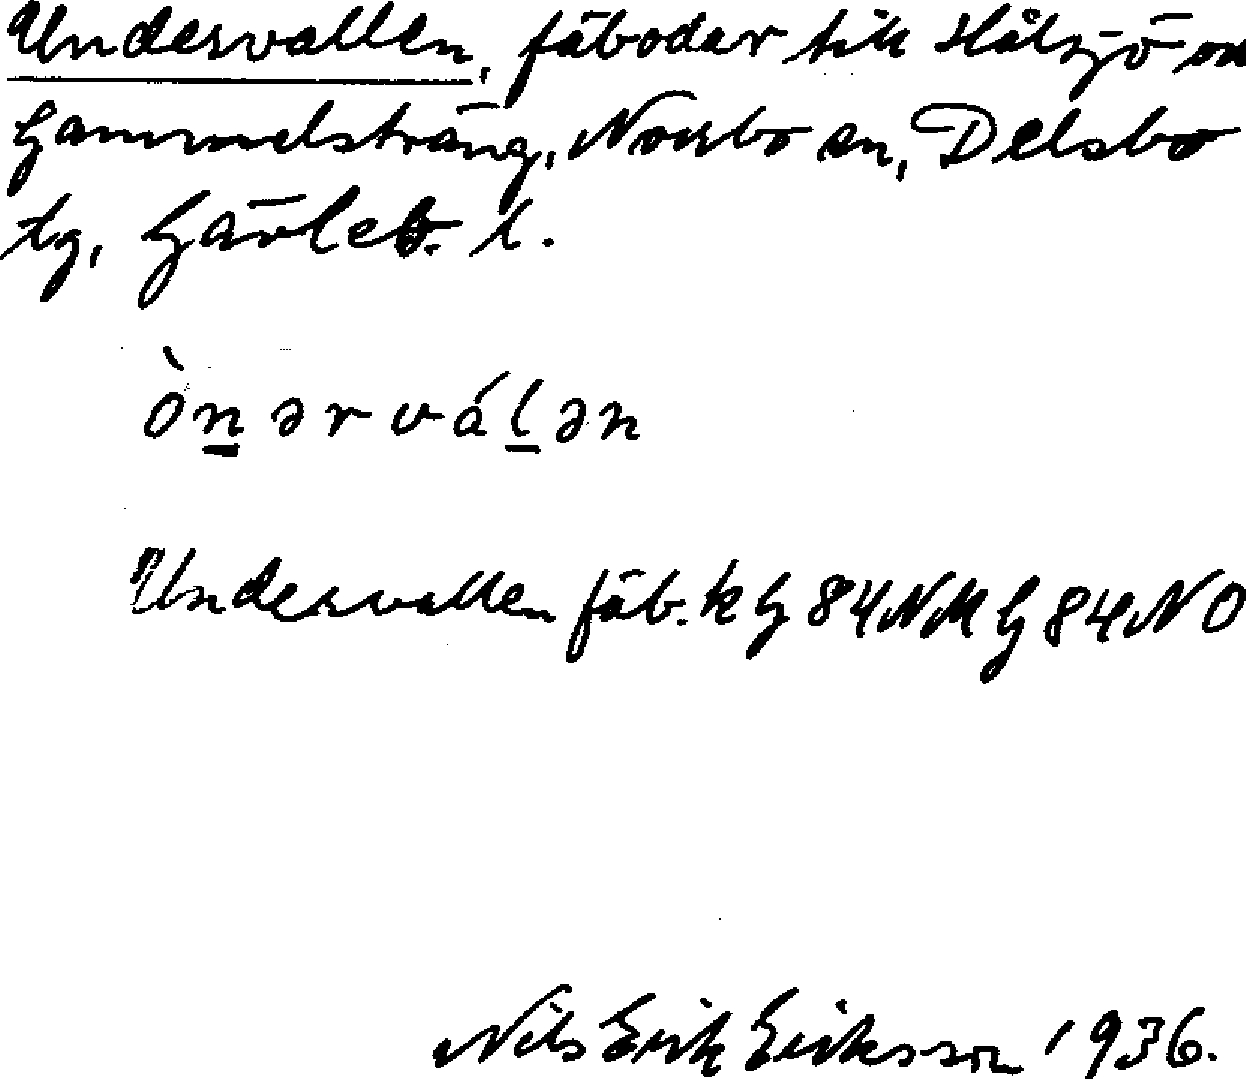 Undervallen, fäbodar till Hålsjö on
Gammelsträng, Norrbo sn, Delsbo
tg, Gävleb. l.
ò̀n̲ərvál̲ən
Undervallen fäb. k G 84 NM G 84 NO
Nils Erik Eriksson 1936.